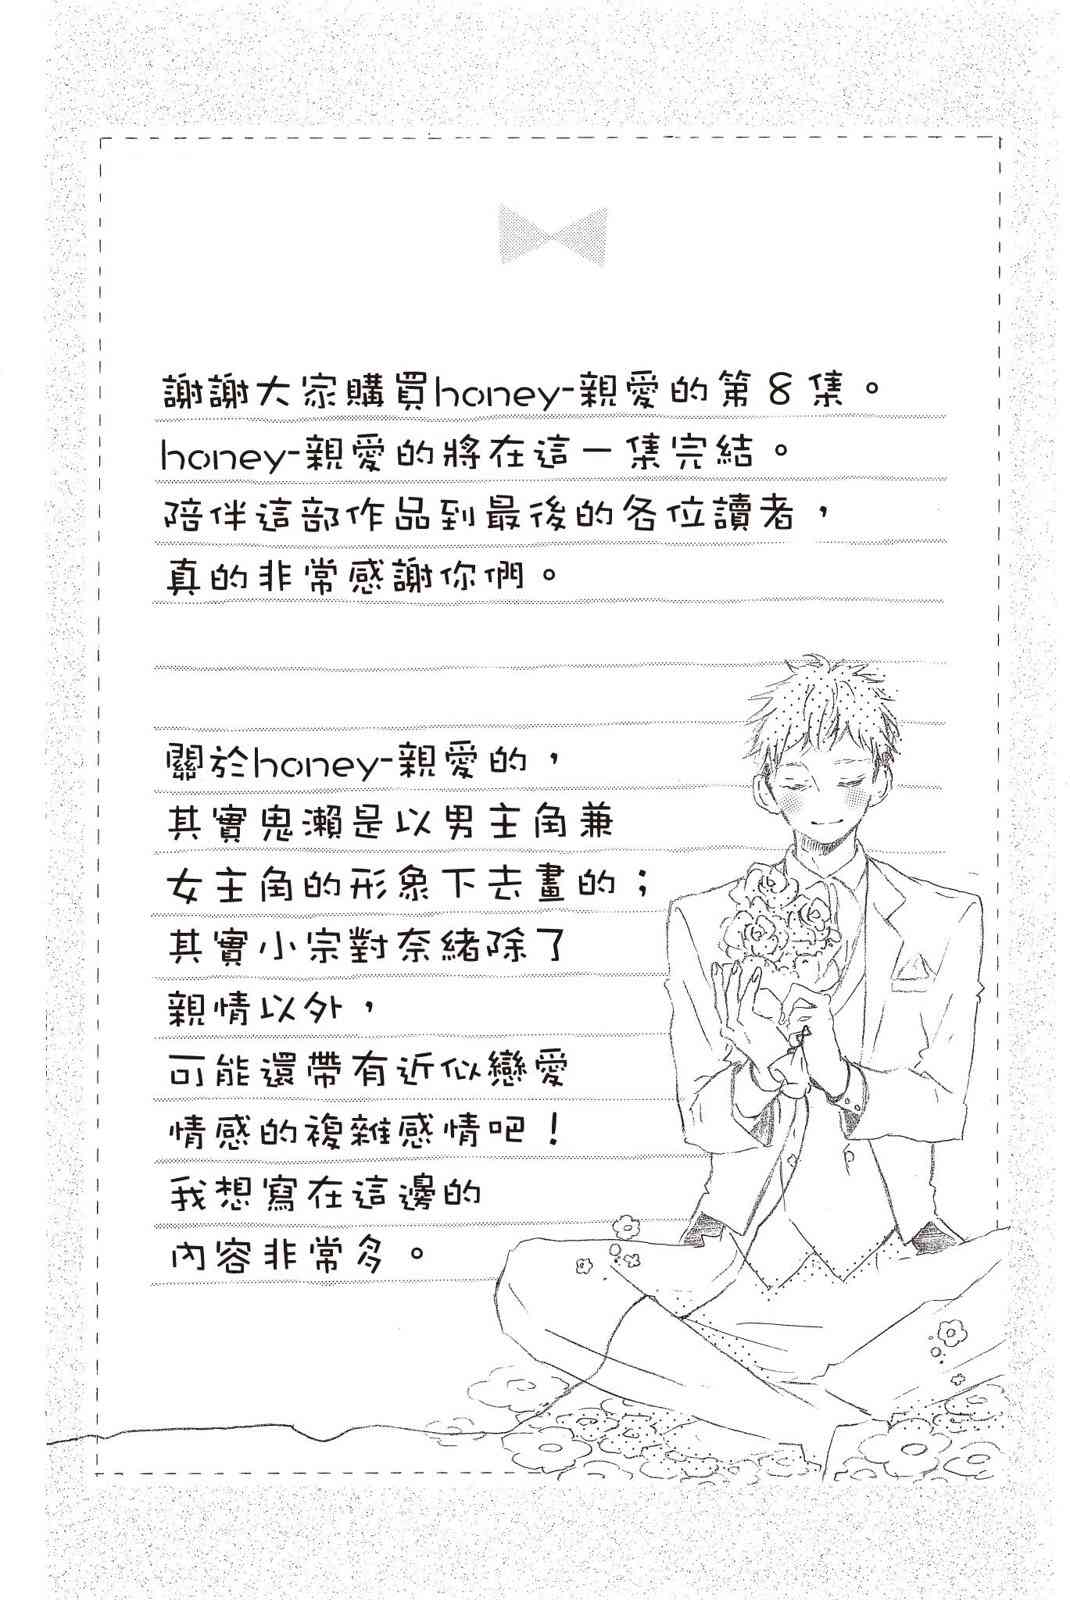 謝謝大家購買honey-親愛的第8集。
honey-親愛的將在這一集完結。
陪伴這部作品到最後的各位讀者，
真的非常感謝你們。
關於honey-親愛的，
其實鬼瀨是以男主角兼
女主角的形象下去畫的；
其實小宗對奈緒除了
親情以外，
可能還帶有近似戀愛
情感的複雜感情吧！
我想寫在這邊的
內容非常多。